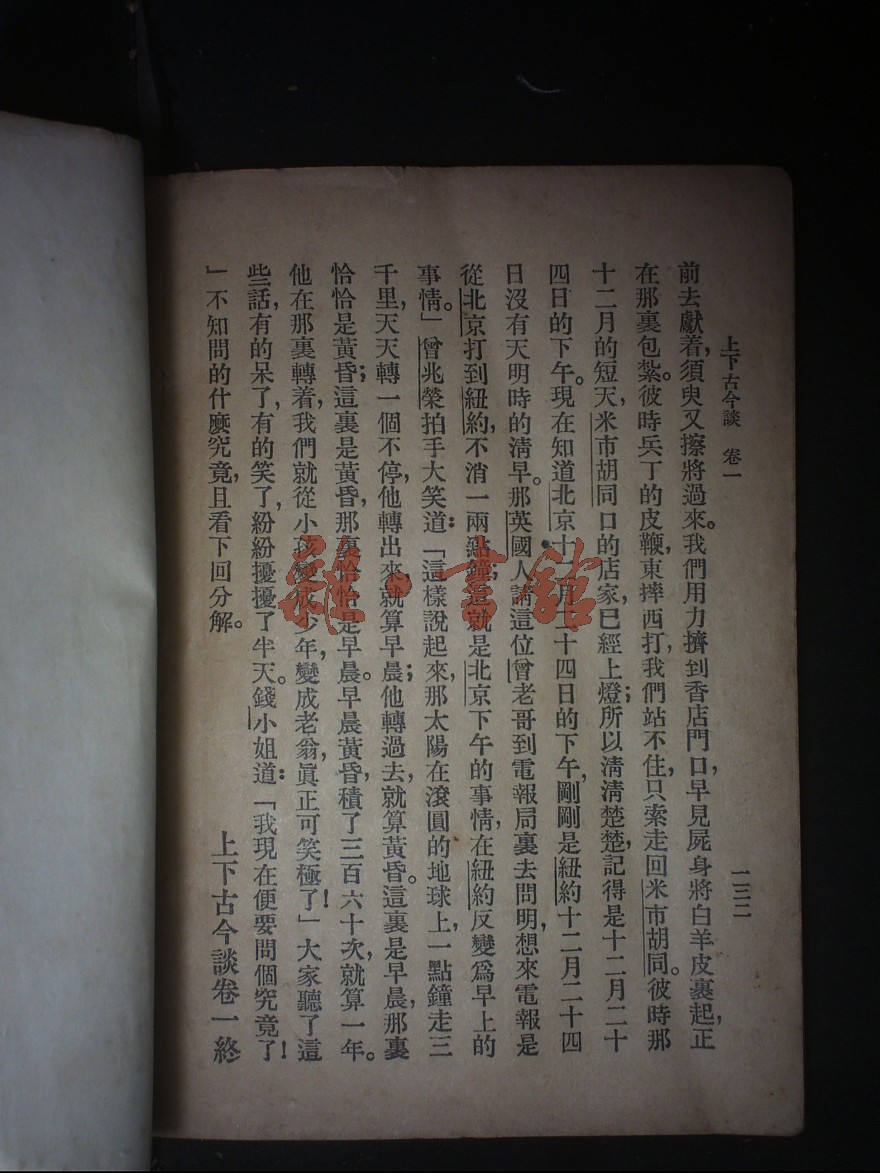 上下古今談　卷一
一三二
前去獻着，須臾又擦將過來。我們用力擠到香店門口，早見屍身將白羊皮裹起，正
在那裏包紮。彼時兵丁的皮鞭，東摔西打，我們站不住，只索走回米市胡同。彼時那
十二月的短天，米市胡同口的店家，已經上燈；所以清清楚楚，記得是十二月二十
四日的下午。現在知道北京十二月二十四日的下午，剛剛是紐約十二月二十四
日沒有天明時的清早。那英國人請這位曾老哥到電報局裏去問明，想來電報是
從北京打到紐約，不消一兩點鐘；這就是北京下午的事情，在紐約反變爲早上的
事情。」曾兆榮拍手大笑道：「這樣說起來，那太陽在滾圓的地球上，一點鐘走三
千里，天天轉一個不停，他轉出來，就算早晨；他轉過去，就算黃昏。這裏是早晨，那裏
恰恰是黃昏；這裏是黃昏，那裏恰恰是早晨。早晨黃昏，積了三百六十次，就算一年。
他在那裏轉着，我們就從小孩變成少年，變成老翁，眞正可笑極了！」大家聽了這
些話，有的呆了，有的笑了，紛紛擾擾了半天。錢小姐道：「我現在便要問個究竟了！
」不知問的什麼究竟，且看下回分解。
上下古今談卷一終
雜·書館